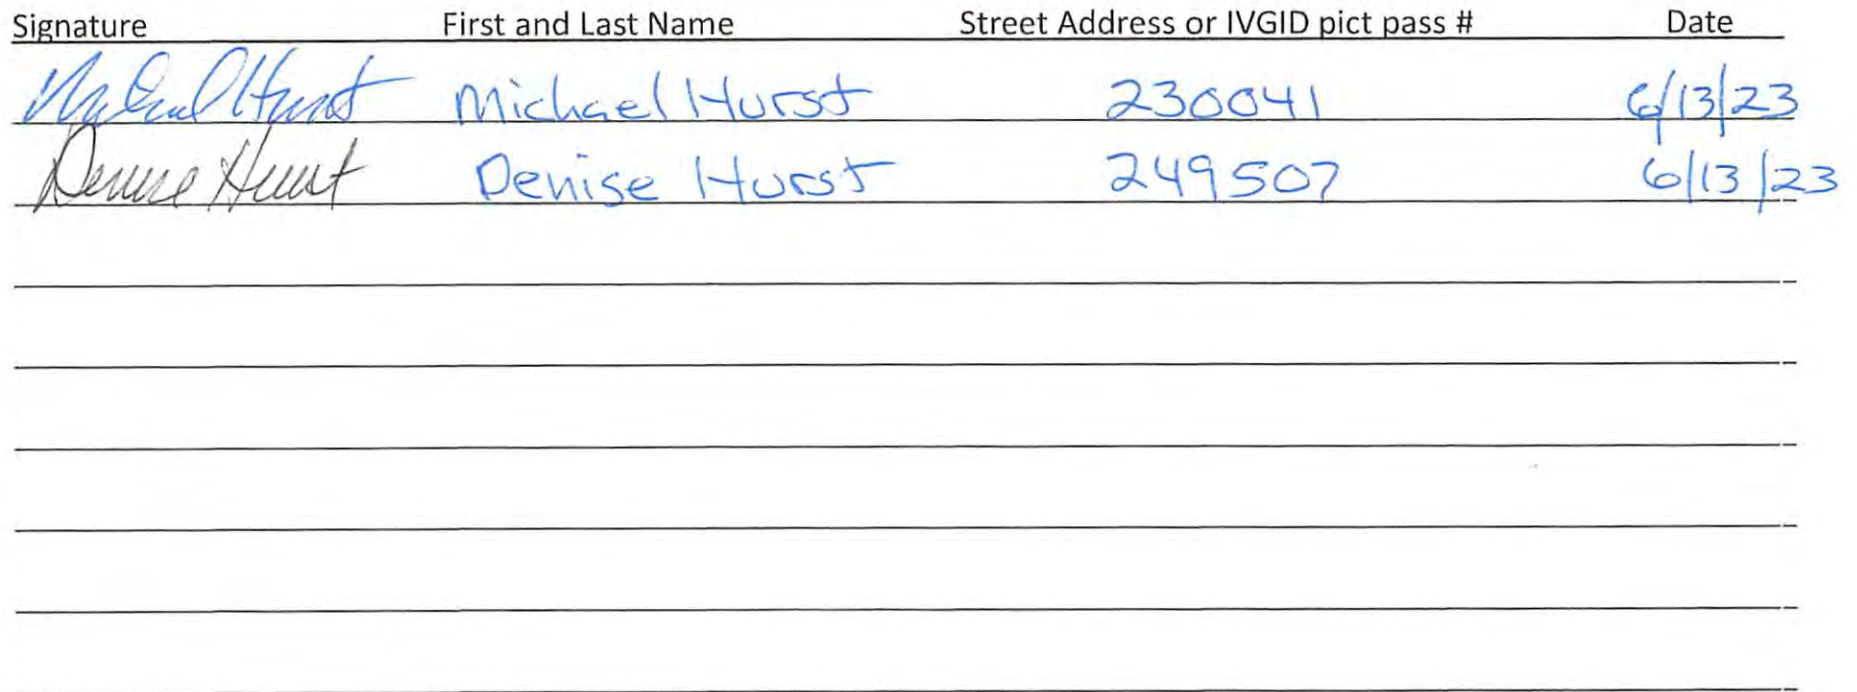 Signature First and Last Name Street Address or IVGID pict pass # Date
Michael Hurst Michael Hurst 230041 6/13/23
Denise Hurst Denise Hurst 249507 6/13/23